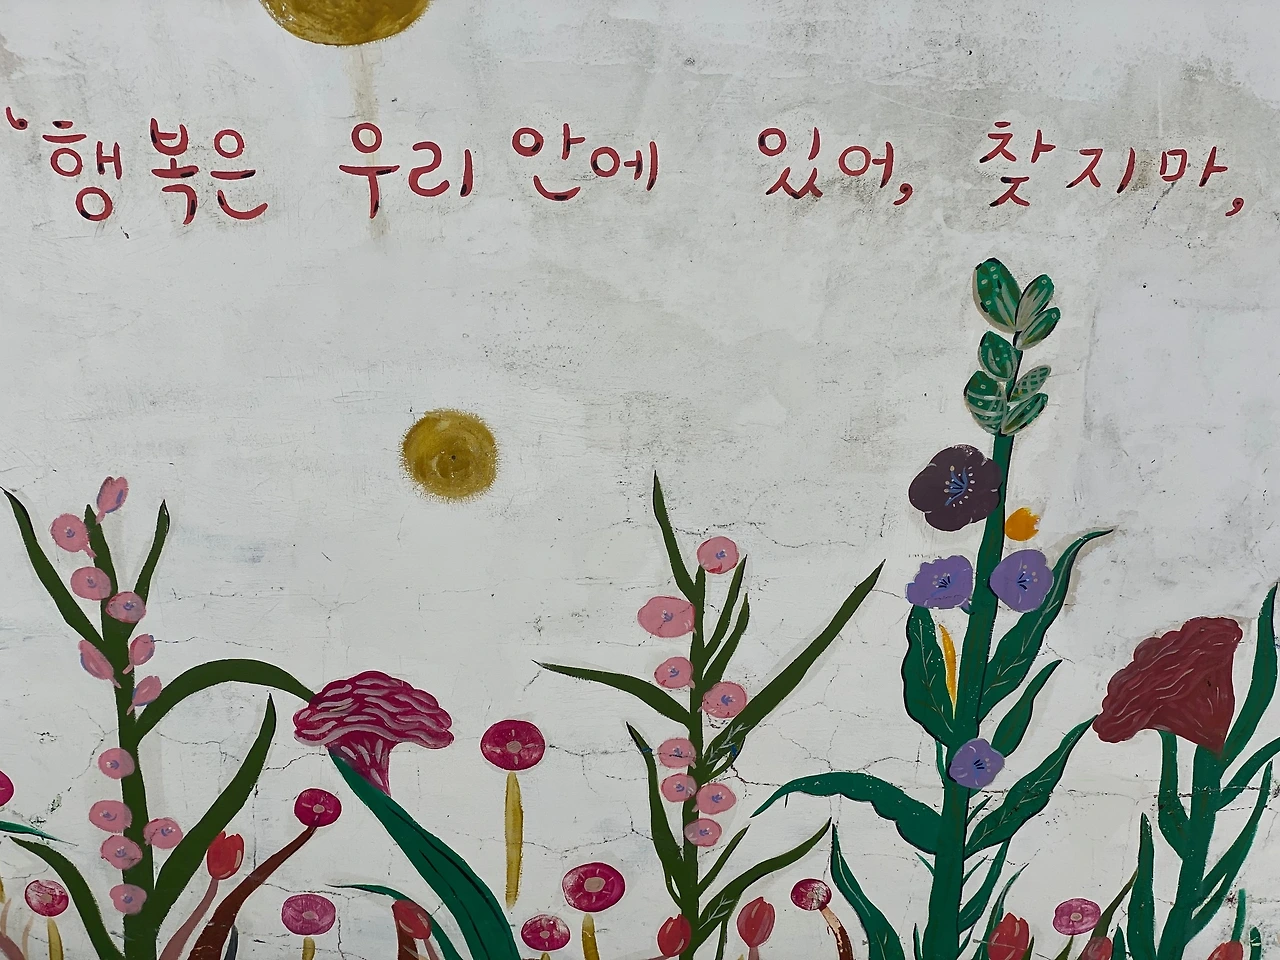 ‘행복은 우리 안에 있어, 찾지마,